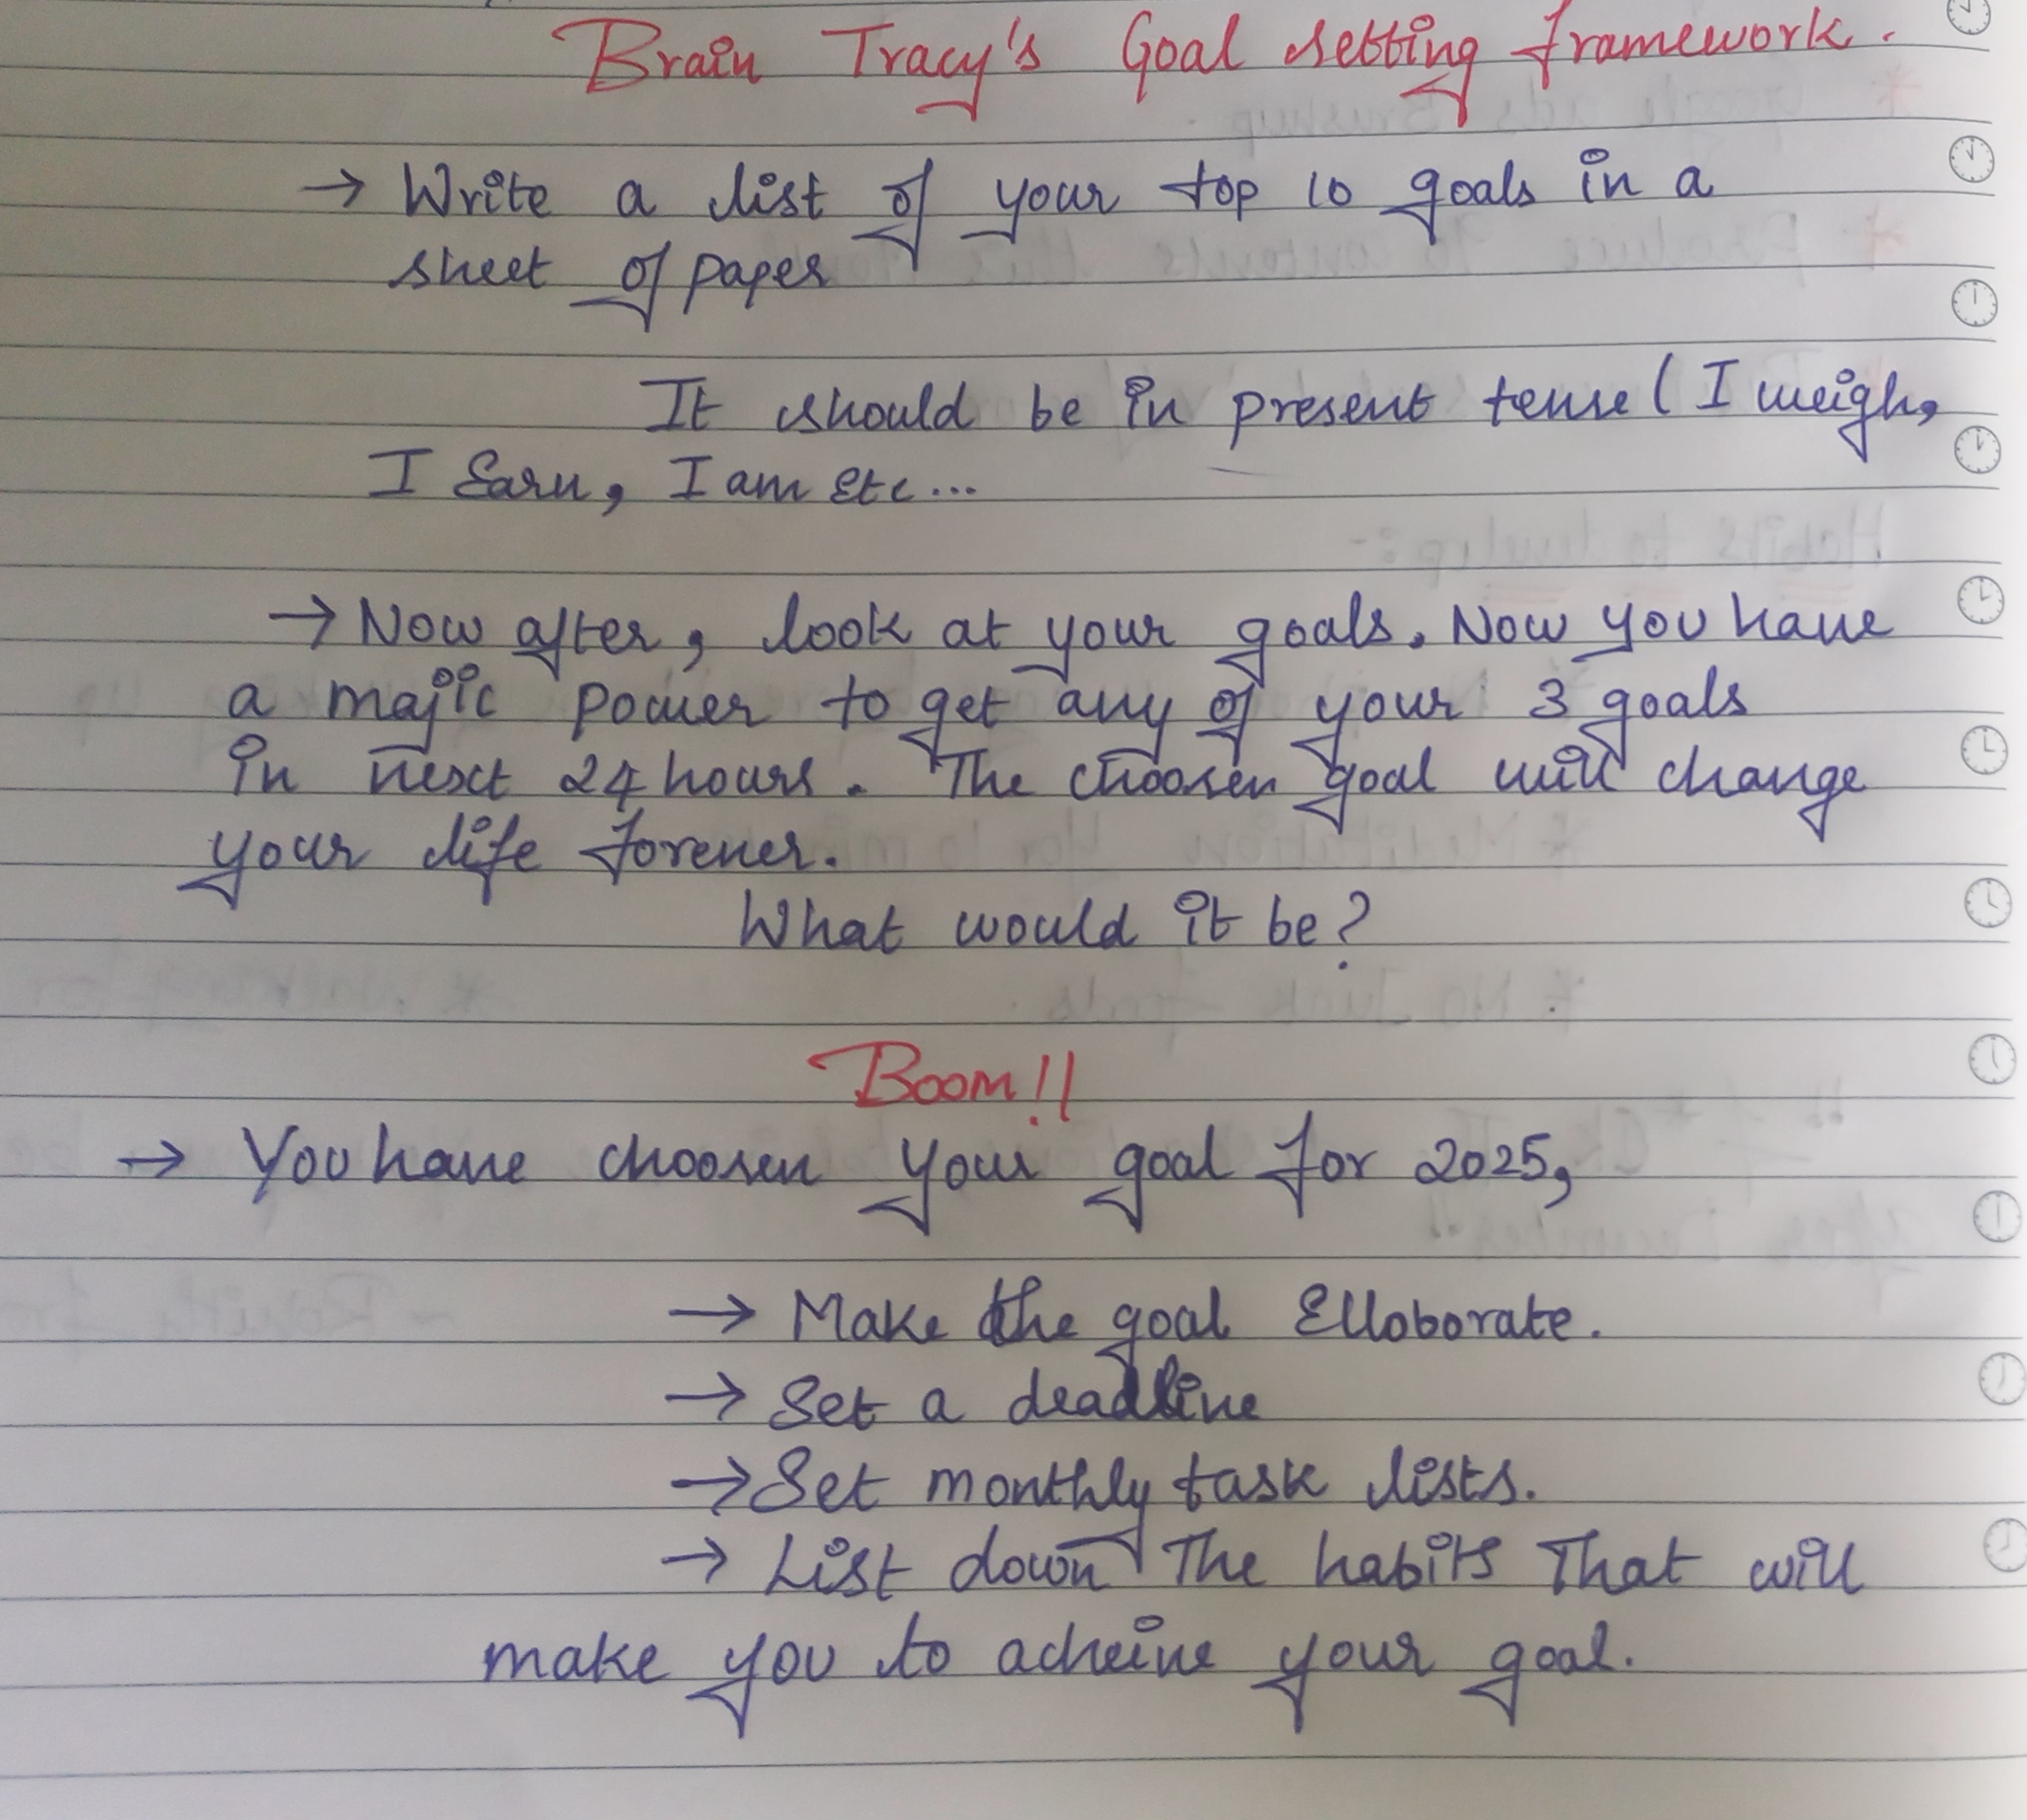 Brain Tracy's Goal setting framework.
→ Write a list of your top 10 goals in a
sheet of paper
It should be in present tense (I weigh,
I Earn, I am Etc...
→ Now after, look at your goals. Now you have
a majic power to get any of your 3 goals
in next 24 hours. The choosen goal will change
your life forever.
What would it be?
Boom!!
→ You have choosen your goal for 2025,
→ Make the goal Elloborate.
→ Set a deadline
→ Set monthly task lists.
→ List down The habits That will
make you to acheive your goal.